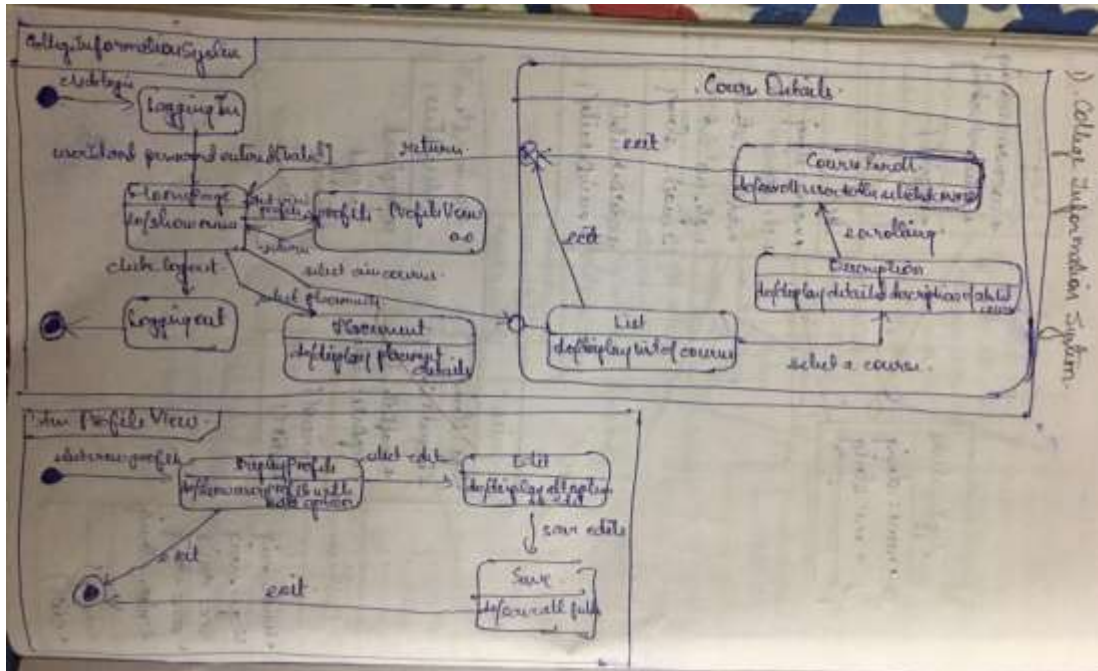 1). College Information System.
College Information System
click login
Logging In
userId and password entered [valid]
Home Page
do/show menu
select view profile
profile : Profile View
return
click logout
Logging out
select view course
select placements
Placement
do/display placement
details
return
Course Details
exit
Course Enroll
do/enroll user to the selected course
enrolling
Description
do/display detailed description of selected
course
exit
List
do/display list of courses
select a course
stm Profile View
select view profile
Display Profile
do/show user profile with
edit option
select edit
Edit
do/display all options
to edit
save edits
Save
do/save all fields
exit
exit